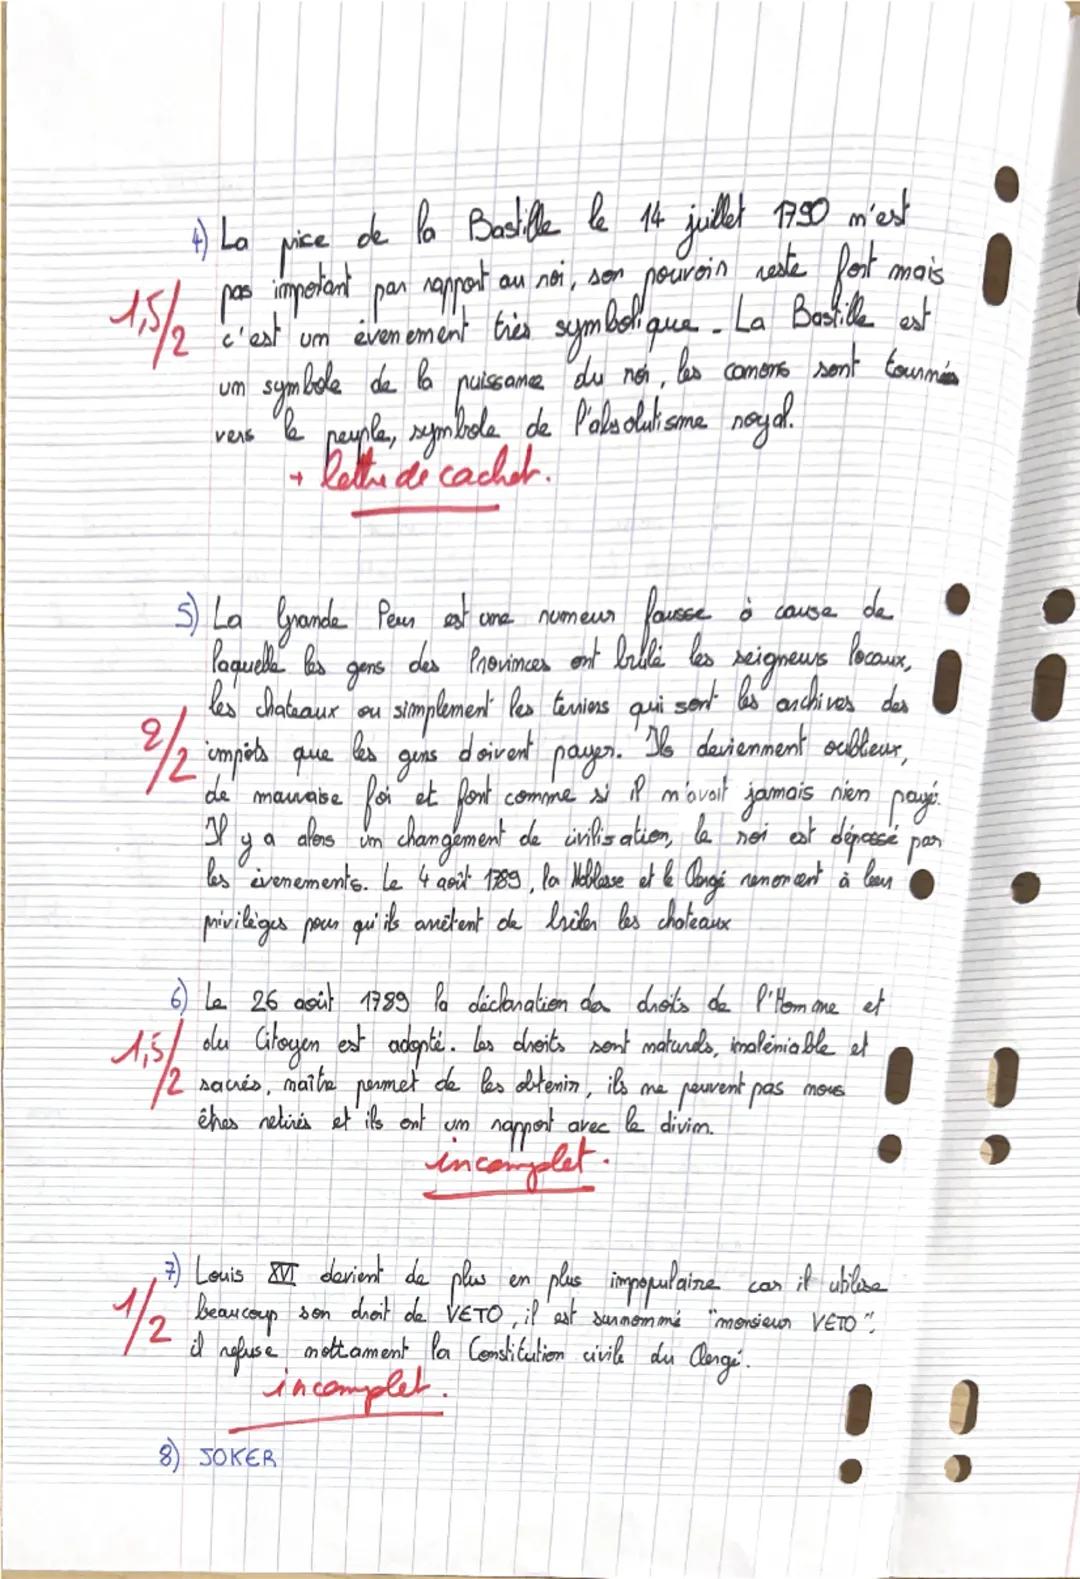 4) La pice de la Bastille le 14 juillet 1790 n'est
pas important par rapport au roi, son pouvoir reste fort mais
1,5/2
c'est un évenement très symbolique. La Bastille est
un symbole de la puissance du roi, les canons sont tournés
vers le peuple, symbole de l'absolutisme royal.
+ lettre de cachet.
5) La Grande Peur est une rumeur fausse à cause de
laquelle les gens des Provinces ont brûlé les seigneurs locaux,
les chateaux ou simplement les terriers qui sont les archives des
2/2
impôts que les gens doivent payer. Ils deviennent oublieux,
de mauvaise foi et font comme si il n'avait jamais rien payé.
Il y a alors un changement de civilisation, le roi est dépassé par
les évenements. Le 4 août 1789, la Noblesse et le Clergé renoncent à leur
privilèges pour qu'ils arrêtent de brûler les chateaux
6) Le 26 août 1789 la déclaration des droits de l'Homme et
1,5/2
du Citoyen est adopté. Les droits sont naturels, inaléniable et
sacrés, naître permet de les obtenir, ils ne peuvent pas nous
êtres retirés et ils ont un rapport avec le divin.
incomplet.
7) Louis XVI devient de plus en plus impopulaire car il utilise
1/2
beaucoup son droit de VETO, il est surnommé "monsieur VETO",
il refuse nottament la Constitution civile du Clergé.
incomplet.
8) JOKER